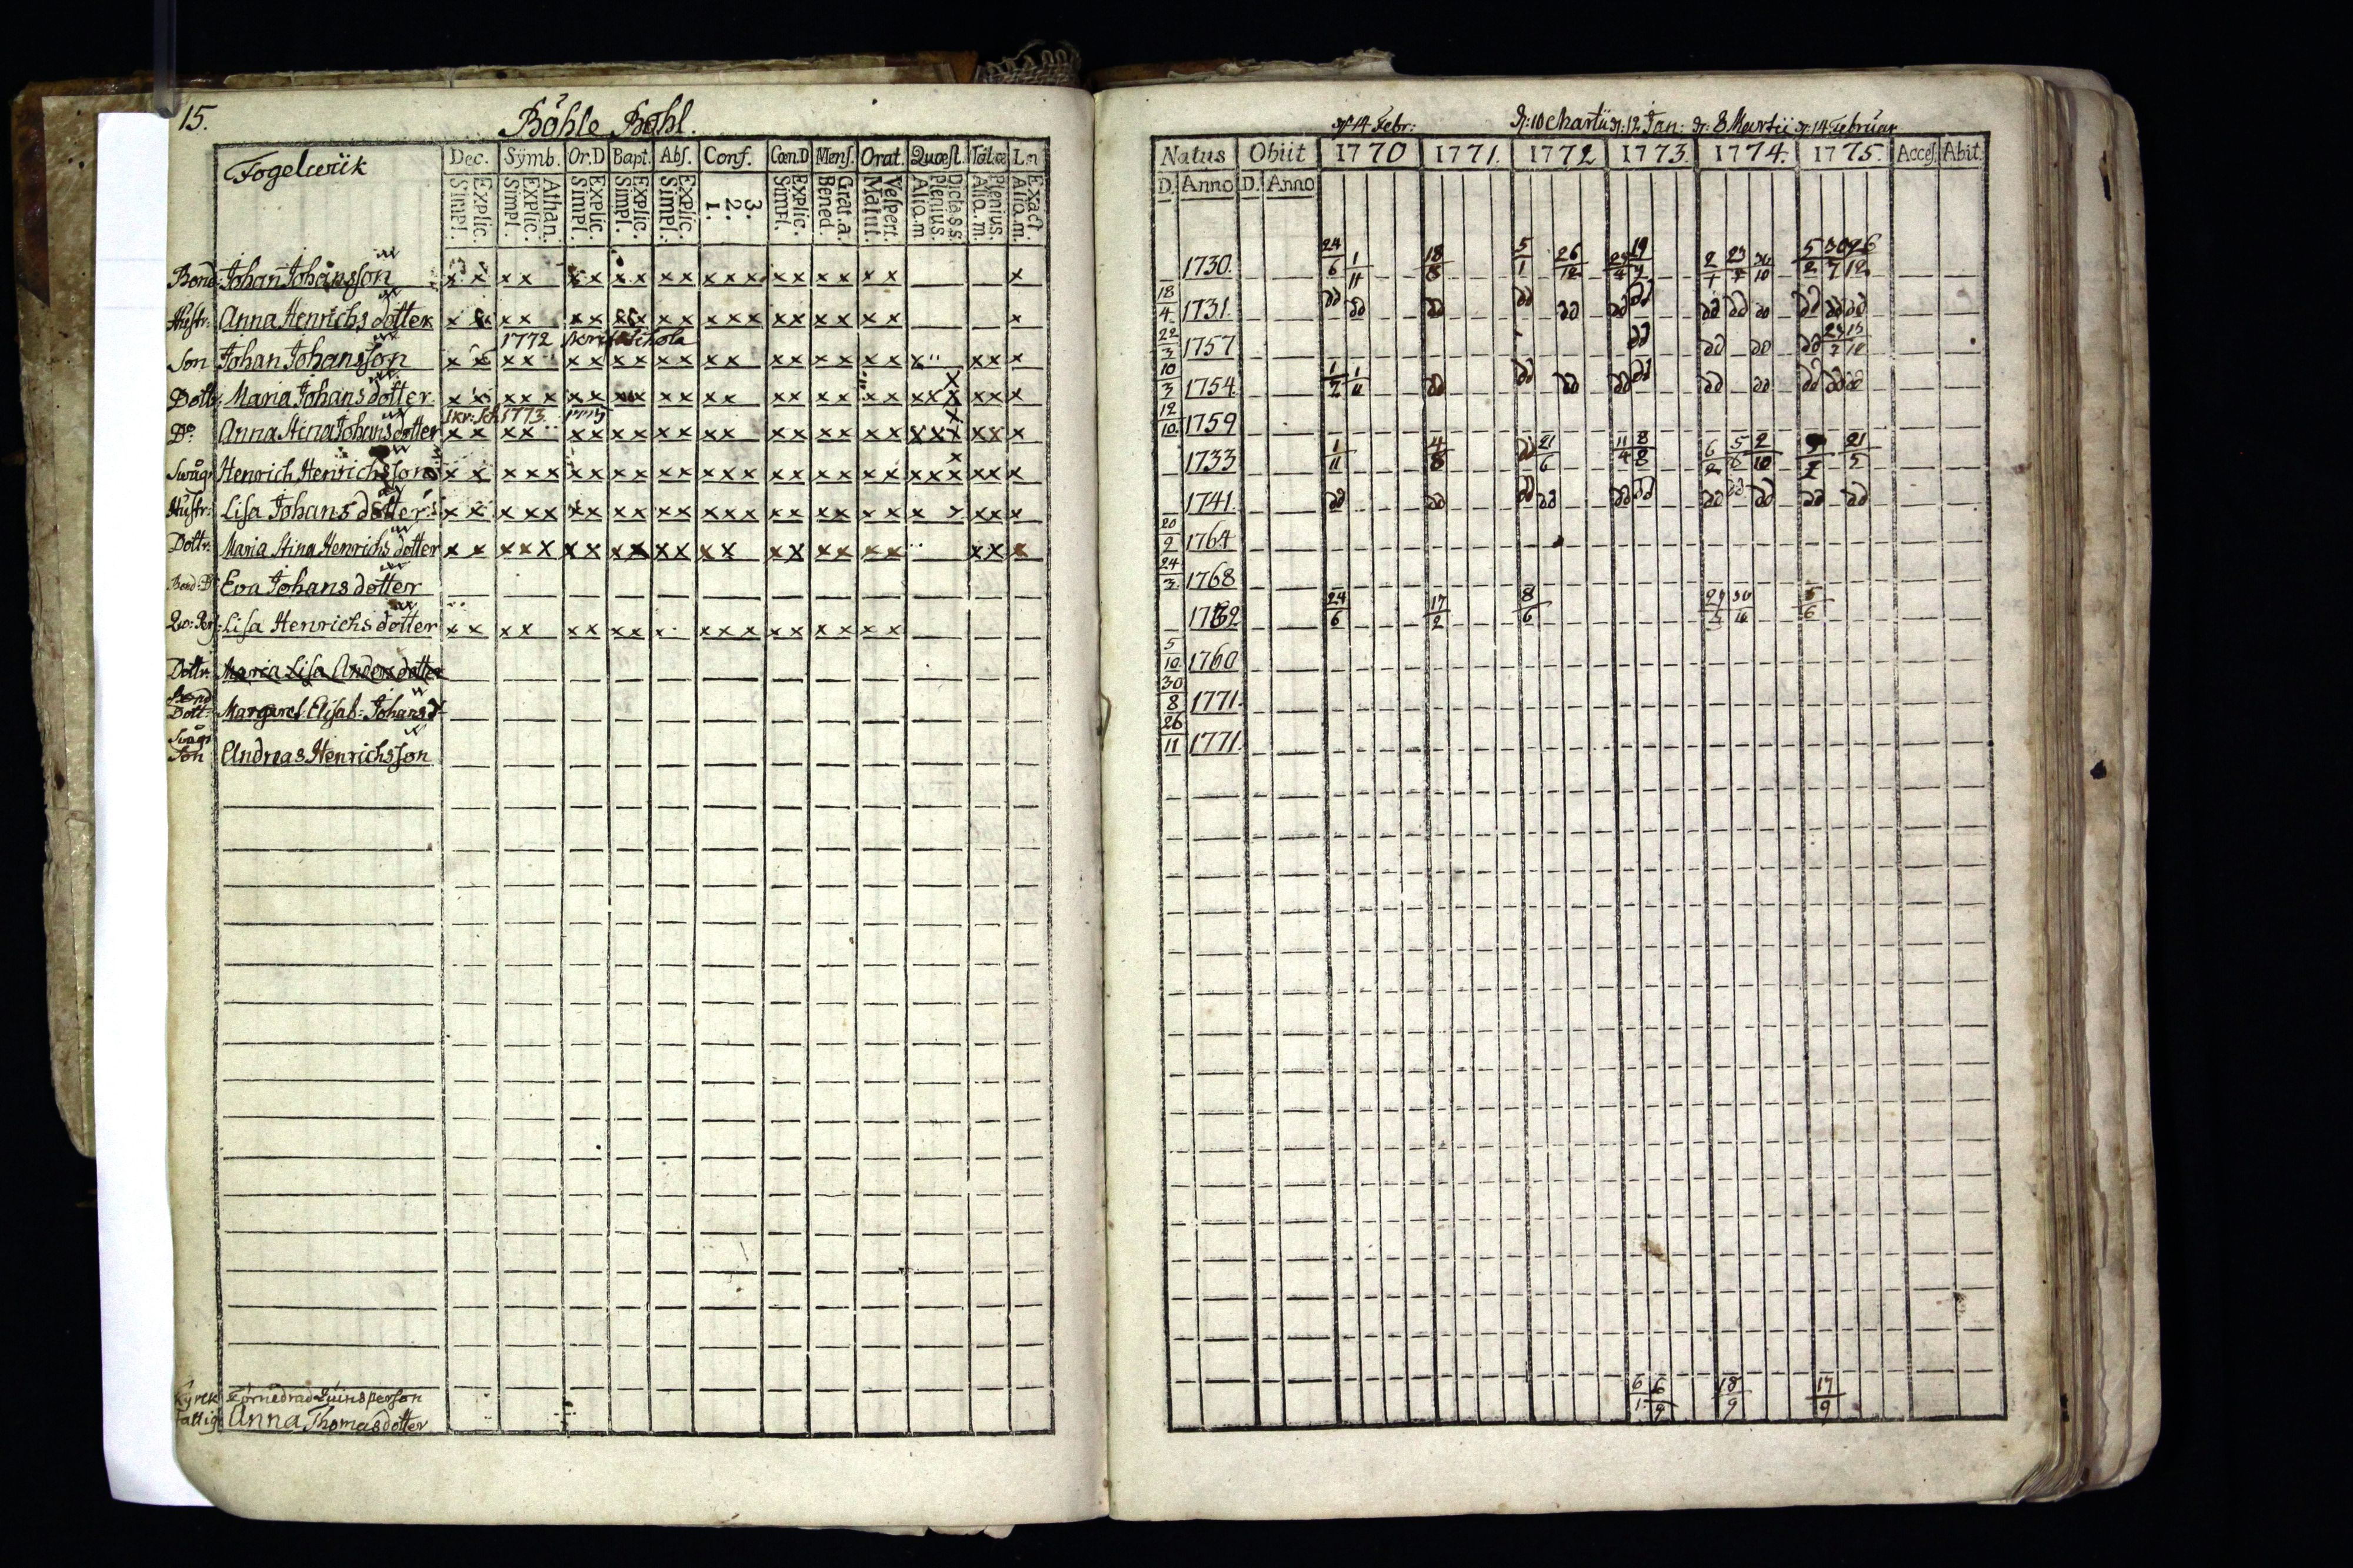 15. Böhle Bohl.
Fogelwiik Dec. Sÿmb. Or.D Bapt. Abſ. Conf. Cœn.D Menſ. Orat. Quæſt. Tal.œ L.n
Simpl. Explic. Simpl. Explic. Athan. Simpl. Explic. Simpl. Explic. Simpl. Explic. 1. 2. 3. Simpl. Explic. Bened. Grat.a. Matut. Veſpert. Aliq.m Plenius. Dict.s.s. Aliq.m. Plenius. Aliq.m. Exact.
Bond. Johan Johansson x x x x x x x x x x x x x x x x x x x
Hustr: Anna Henrichs dotter x x x x x x x x x x x x x x x x x
1772
Son Johan Johansson x x x x x x x x x x x x x x x x x x x x x
Dottr. Maria Johans dotter x x x x x x x x x x x x x x x x x x x x x x
1773
Do. Anna Stina Johans dotter x x x x x x x x x x x x x x x x x x x x x x x
Swågr Henrich Henrichsson x x x x x x x x x x x x x x x x x x x x x x x x x
Hustr: Lisa Johans dotter x x x x x x x x x x x x x x x x x x x x x x
Dottr. Maria Stina Henrichs dotter x x x x x x x x x x x x x x x x x x x x x x
Bond: D. Eva Johans dotter
Lisa Henrichs dotter x x x x x x x x x x x x x x x x x
Dottr. Maria Lisa Anders dotter
Bond
Dott. Margaret Elisab: Johans d
Swågr
Son Andreas Henrichsson
Kyrck Förnedrad Quinsperson
Fattig Anna Thomasdotter
14 Febr: 10 Martii 12 Jan: 8 Martii 14 Februar
Natus Obiit 1770 1771. 1772 1773. 1774. 1775. Acceſ. Abit.
D. Anno D. Anno
1730. 24/6 1/11 18/8 5/1 26/12
18/4 1731. dd dd dd dd dd dd dd dd dd dd dd dd dd
22/3 1757 dd dd dd dd
10/3 1754. 1/11 dd dd dd dd dd dd dd dd dd dd
12/10. 1759
1733 1/11 4/8 21/6 11/4 8/8 5/8 2/10 21/5
1741. dd dd dd dd dd dd dd dd dd dd dd
20/9 1764
24/3 1768
24/6 17/2 8/6 5/6
5/10. 1760
30/8 1771.
26/11 1771.
6/1. 6/9 18/9 17/9